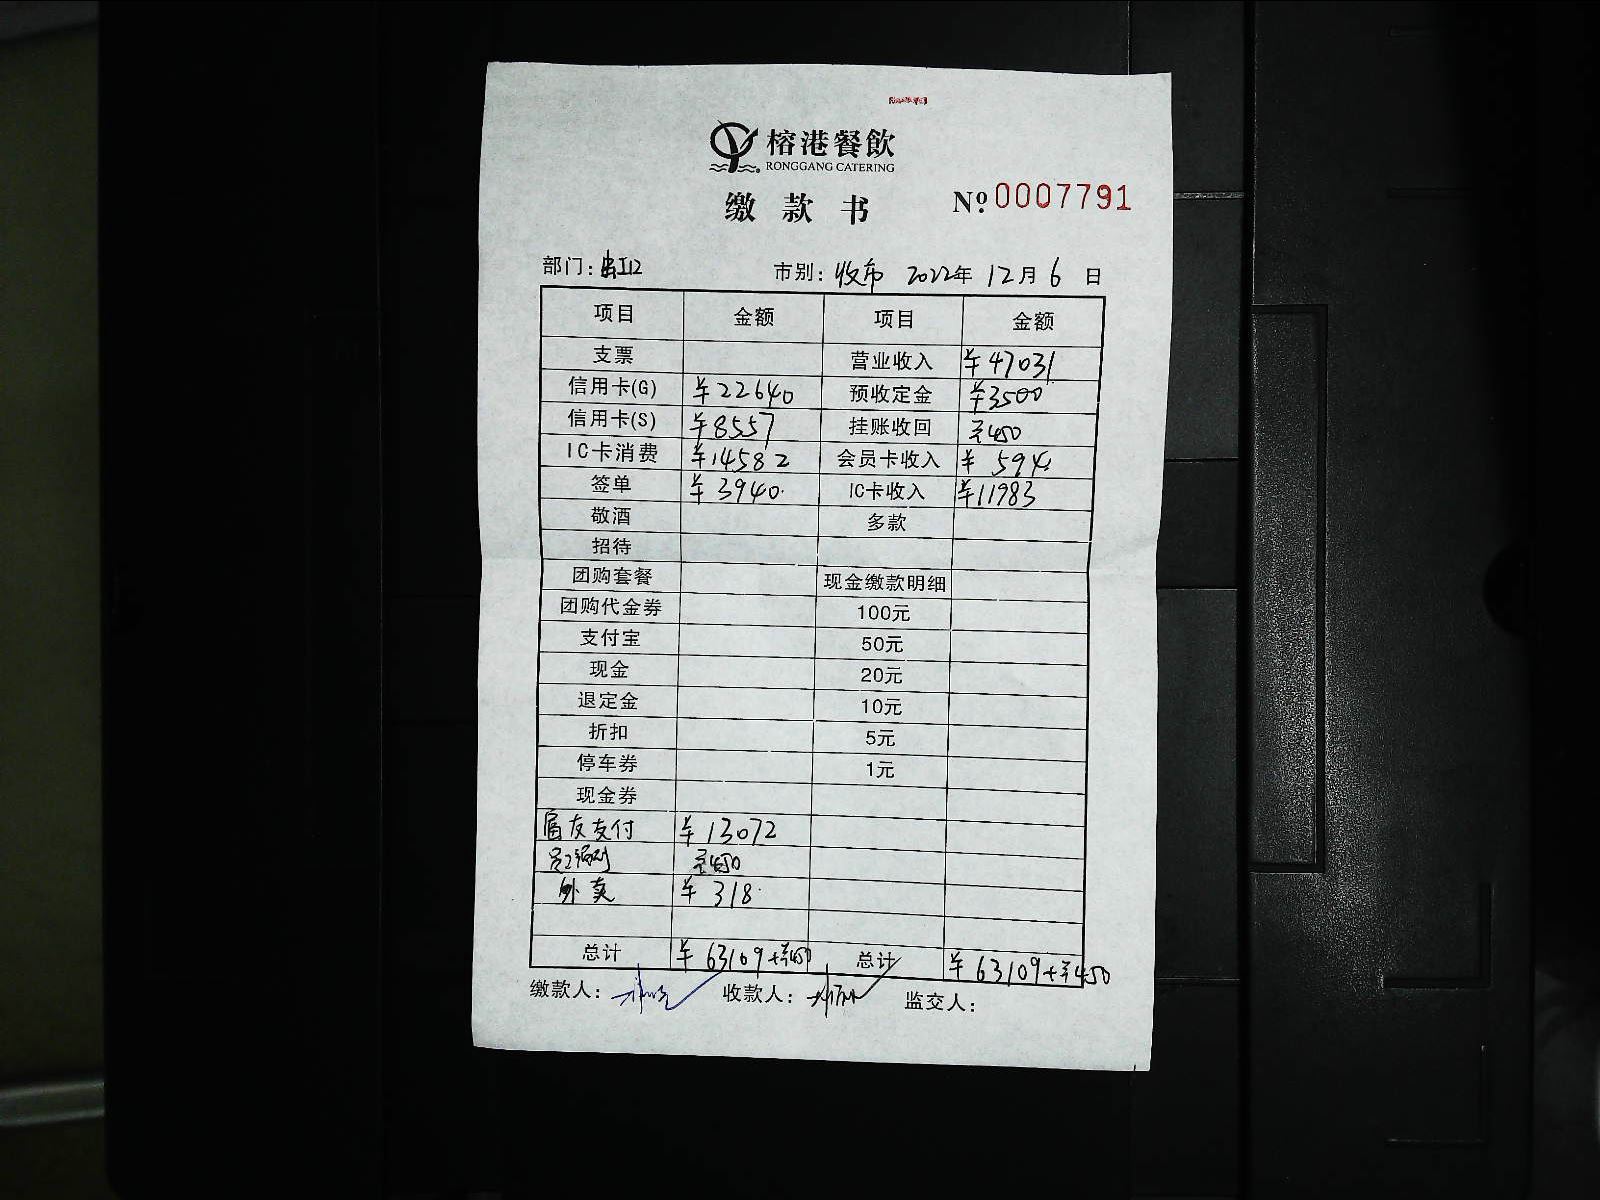 榕港餐飲
RONGGANG CATERING
缴款书 №0007791
部门: 虹口 市别: 收市 2022年12月6日
项目 金额 项目 金额
支票 营业收入 ¥47031
信用卡(G) ¥22640 预收定金 ¥3500
信用卡(S) ¥8557 挂账收回 ¥450
IC卡消费 ¥14582 会员卡收入 ¥594
签单 ¥3940 IC卡收入 ¥11983
敬酒 多款
招待
团购套餐 现金缴款明细
团购代金券 100元
支付宝 50元
现金 20元
退定金 10元
折扣 5元
停车券 1元
现金券
友支付 ¥13072
¥450
外卖 ¥318
总计 ¥63109+¥450 总计 ¥63109+¥450
缴款人: 收款人: 监交人: